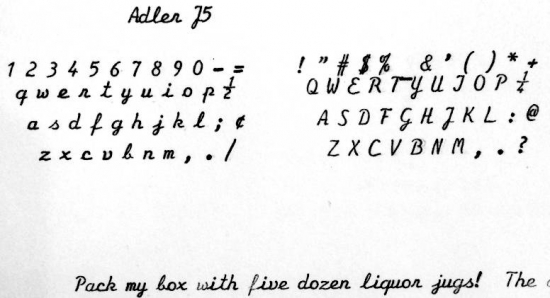 Adler J5
1 2 3 4 5 6 7 8 9 0 - =
q w e r t y u i o p ½
a s d f g h j k l ; ¢
z x c v b n m , . /
! " # $ % & ' ( ) * +
Q W E R T Y U I O P ¼
A S D F G H J K L : @
Z X C V B N M , . ?
Pack my box with five dozen liquor jugs! The